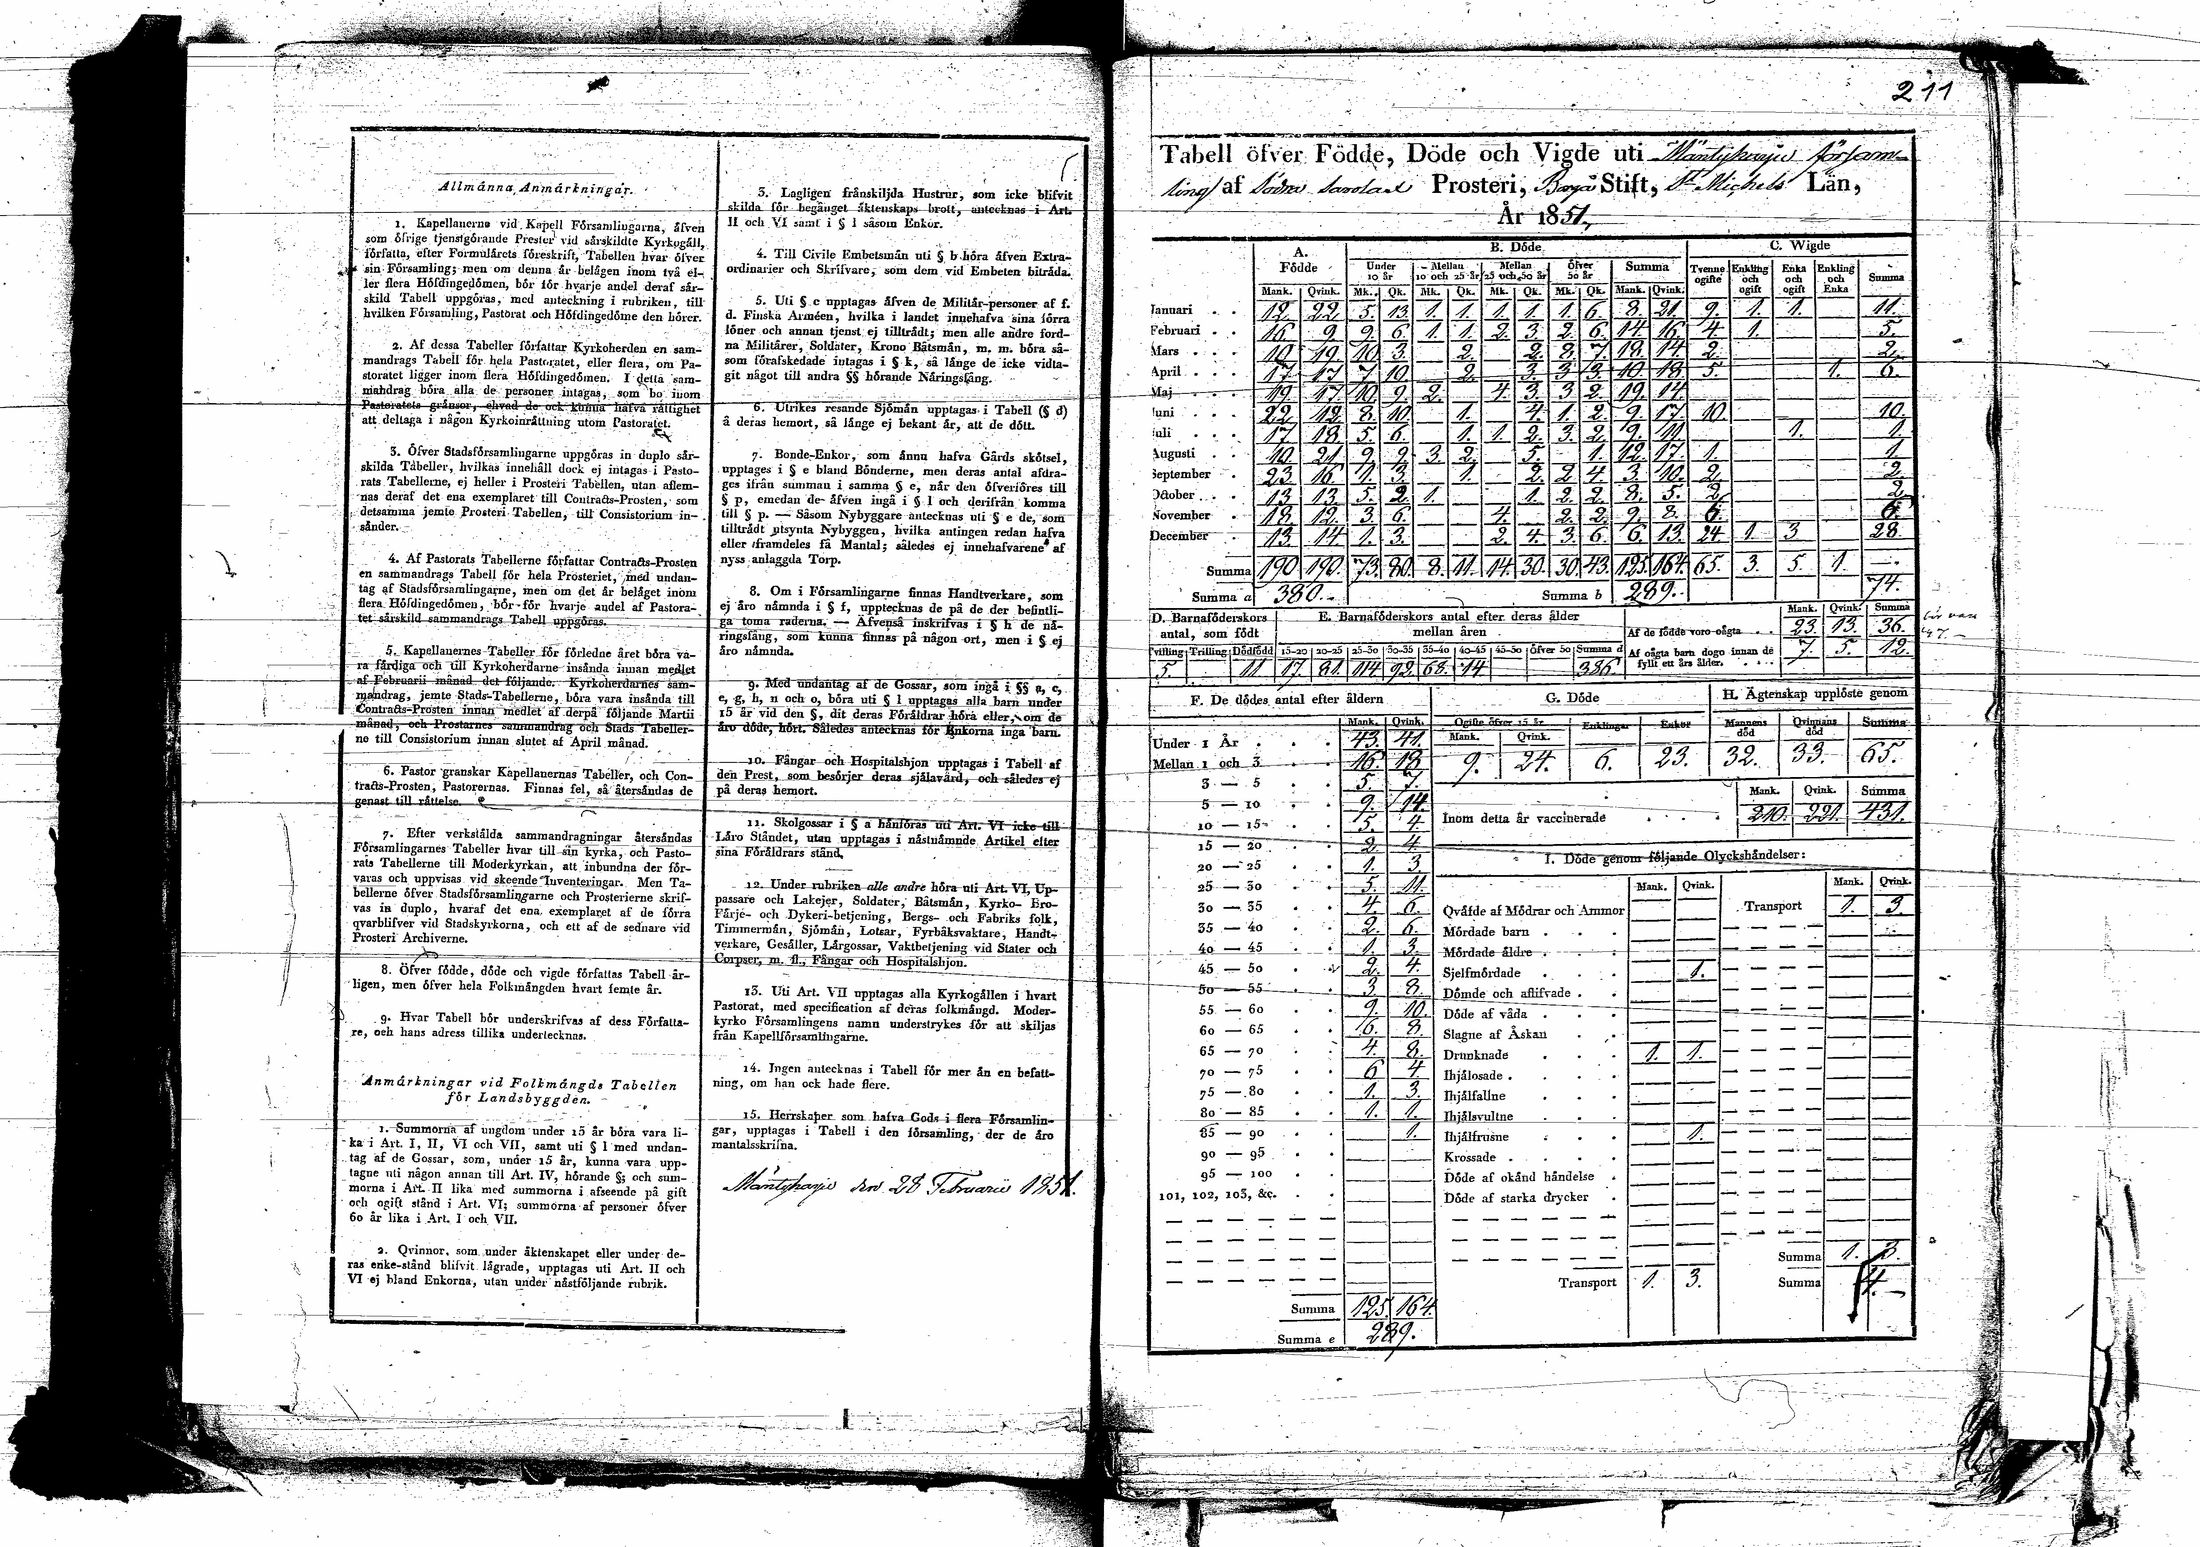 211
Allmänna Anmärkningar.
1. Kapellanerne vid Kapell Församlingarna, äfven
som öfrige tjenstgörande Prester vid särskildte Kyrkogäll,
författa, efter Formulärets föreskrift, Tabellen hvar öfver
sin Församling; men om denna är belägen inom två el-
ler flera Höfdingedömen, bör för hvarje andel deraf sär-
skild Tabell uppgöras, med anteckning i rubriken, till
hvilken Församling, Pastorat och Höfdingedöme den hörer.
2. Af dessa Tabeller författar Kyrkoherden en sam-
mandrags Tabell för hela Pastoratet, eller flera, om Pa-
storatet ligger inom flera Höfdingedömen. I detta sam-
mandrag böra alla de personer intagas, som bo inom
Pastoratets gränsor, ehvad de ock kunna hafva rättighet
att deltaga i någon Kyrkoinrättning utom Pastoratet.
3. Öfver Stadsförsamlingarne uppgöras in duplo sär-
skilda Tabeller, hvilkas innehåll dock ej intagas i Pasto-
rats Tabellerne, ej heller i Prosteri Tabellen, utan aflem-
nas deraf det ena exemplaret till Contracts-Prosten, som
detsamma jemte Prosteri Tabellen, till Consistorium in-
sänder.
4. Af Pastorats Tabellerne författar Contracts-Prosten
en sammandrags Tabell för hela Prosteriet, med undan-
tag af Stadsförsamlingarne, men om det är beläget inom
flera Höfdingedömen, bör för hvarje andel af Pastora-
tet särskild sammandrags Tabell uppgöras.
5. Kapellanernes Tabeller för förledne året böra va-
ra färdiga och till Kyrkoherdarne insända innan medlet
af Februarii månad det följande. Kyrkoherdarnes sam-
mandrag, jemte Stads-Tabellerne, böra vara insända till
Contracts-Prosten innan medlet af derpå följande Martii
månad, och Prostarnes sammandrag och Stads Tabeller-
ne till Consistorium innan slutet af April månad.
6. Pastor granskar Kapellanernas Tabeller, och Con-
tracts-Prosten, Pastorernas. Finnas fel, så återsändas de
genast till rättelse.
7. Efter verkställda sammandragningar återsändas
Församlingarnes Tabeller hvar till sin kyrka, och Pasto-
rats Tabellerne till Moderkyrkan, att inbundna der för-
varas och uppvisas vid skeende Inventeringar. Men Ta-
bellerne öfver Stadsförsamlingarne och Prosterierne skrif-
vas in duplo, hvaraf det ena exemplaret af de förra
qvarblifver vid Stadskyrkorna, och ett af de sednare vid
Prosteri Archiverne.
8. Öfver födde, döde och vigde författas Tabell år-
ligen, men öfver hela Folkmängden hvart femte år.
9. Hvar Tabell bör underskrifvas af dess Författa-
re, och hans adress tillika undertecknas.
Anmärkningar vid Folkmängds Tabellen
för Landsbyggden.
1. Summorna af ungdom under 15 år böra vara li-
ka i Art. I, II, VI och VII, samt uti § l med undan-
tag af de Gossar, som, under 15 år, kunna vara upp-
tagne uti någon annan till Art. IV, hörande §; och sum-
morna i Art. II lika med summorna i afseende på gift
och ogift stånd i Art. VI; summorna af personer öfver
60 år lika i Art. I och VII.
2. Qvinnor, som under äktenskapet eller under de-
ras enke-stånd blifvit lägrade, upptagas uti Art. II och
VI ej bland Enkorna, utan under nästföljande rubrik.
3. Lagligen frånskiljda Hustrur, som icke blifvit
skilda för begånget äktenskaps brott, antecknas i Art.
II och VI samt i § l såsom Enkor.
4. Till Civile Embetsmän uti § b höra äfven Extra-
ordinarier och Skrifvare, som dem vid Embeten biträda.
5. Uti § c upptagas äfven de Militär-personer af f.
d. Finska Arméen, hvilka i landet innehafva sina förra
löner och annan tjenst ej tillträdt; men alle andre ford-
na Militärer, Soldater, Krono Båtsmän, m. m. böra så-
som förafskedade intagas i § k, så länge de icke vidta-
git något till andra §§ hörande Näringsfång.
6. Utrikes resande Sjömän upptagas i Tabell (§ d)
å deras hemort, så länge ej bekant är, att de dött.
7. Bonde-Enkor, som ännu hafva Gårds skötsel,
upptages i § e bland Bönderne, men deras antal afdra-
ges ifrån summan i samma § e, när den öfverföres till
§ p, emedan de äfven ingå i § l och derifrån komma
till § p. — Såsom Nybyggare antecknas uti § e de, som
tillträdt utsynta Nybyggen, hvilka antingen redan hafva
eller framdeles få Mantal; således ej innehafvarene af
nyss anlaggda Torp.
8. Om i Församlingarne finnas Handtverkare, som
ej äro nämnda i § f, upptecknas de på de der befintli-
ga toma raderna. — Äfvenså inskrifvas i § h de nä-
ringsfång, som kunna finnas på någon ort, men i § ej
äro nämnda.
9. Med undantag af de Gossar, som ingå i §§ a, c,
e, g, h, n och o, böra uti § l upptagas alla barn under
15 år vid den §, dit deras Föräldrar höra eller, om de
äro döde, hört. Således antecknas för Enkorna inga barn.
10. Fångar och Hospitalshjon upptagas i Tabell af
den Prest, som besörjer deras själavård, och således ej
på deras hemort.
11. Skolgossar i § a hänföras uti Art. VI icke till
Läro Ståndet, utan upptagas i nästnämnde Artikel efter
sina Föräldrars stånd.
12. Under rubriken alle andre höra uti Art. VI, Up-
passare och Lakejer, Soldater, Båtsmän, Kyrko- Bro-
Färje- och Dykeri-betjening, Bergs- och Fabriks folk,
Timmermän, Sjömän, Lotsar, Fyrbåksvaktare, Handt-
verkare, Gesäller, Lärgossar, Vaktbetjening vid Stater och
Corpser, m. fl., Fångar och Hospitalshjon.
13. Uti Art. VII upptagas alla Kyrkogällen i hvart
Pastorat, med specification af deras folkmängd. Moder-
kyrko Församlingens namn understrykes för att skiljas
från Kapellförsamlingarne.
14. Ingen antecknas i Tabell för mer än en befatt-
ning, om han ock hade flere.
15. Herrskaper som hafva Gods i flera Församlin-
gar, upptagas i Tabell i den församling, der de äro
mantalsskrifna.
Mäntyharju den 28 Februarii 1851.
Tabell öfver Födde, Döde och Vigde uti Mäntyharju försam-
ling af Södra Savolax Prosteri, Borgå Stift, St Michels Län,
År 1851,
A. Födde B. Döde C. Wigde
Under 10 år Mellan 10 och 25 år Mellan 25 och 50 år Öfver 50 år Summa Tvenne ogifte Enkling och ogift Enka och ogift Enkling och Enka Summa
Mank. Qvink. Mk. Qk. Mk. Qk. Mk. Qk. Mk. Qk. Mank. Qvink.
Januari 12. 22. 5. 13. 1. 1. 1. 1. 1. 6. 8. 21. 9. 1. 1. 11.
Februari 16. 9. 9. 6. 1. 1. 2. 3. 2. 6. 14. 16. 4. 1. 5.
Mars 10. 19. 10. 3. — 2. — 2. 8. 7. 18. 14. 2. 2.
April 17. 17. 7. 10. — 2. — 3. 3. 3. 10. 18. 5. 1. 6.
Maj 19. 17. 10. 9. 2. — 4. 3. 3. 2. 19. 14.
Juni 22. 12. 8. 10. — 1. — 4. 1. 2. 9. 17. 10. 10.
Juli 17. 18. 5. 6. — 1. 1. 2. 3. 2. 9. 11. 1. 1.
Augusti 10. 21. 9. 9. 3. 2. — 5. — 1. 12. 17. 1. 1
September 23. 16. 1. 3. — 1. — 2. 2. 4. 3. 10. 2. 2.
October 13. 13. 5. 2. 1. 1. 2. 2. 8. 5. 2. 2.
November 18. 12. 3. 6. 4. — 2. 2. 9. 8. 6. 6.
December 13. 14. 1. 3. 2. 4. 3. 6. 6. 13. 24. 1. 3 28.
Summa 190. 190. 73. 80. 8. 11. 14. 30. 30. 43. 125. 164. 65. 3. 5. 1. —
Summa a 380. Summa b 289. 74.
D. Barnaföderskors antal, som födt
Tvilling Trilling Dödfödd
5. 11.
E. Barnaföderskors antal efter deras ålder mellan åren
15-20 20-25 25-30 30-35 35-40 40-45 45-50 Öfver 50 Summa d
17. 81. 114. 92. 68. 14. 386.
Mank. Qvink. Summa
Af de födde voro oägta 23. 13. 36.
Af oägta barn dogo innan de fyllt ett års ålder. 7. 5. 12.
F. De dödes antal efter åldern
Mank. Qvink.
Under 1 År 43. 41.
Mellan 1 och 3 16. 18.
3 — 5 5. 7.
5 — 10 9. 14.
10 — 15 5. 4.
15 — 20 2. 4.
20 — 25 1. 3
25 — 30 5. 11.
30 — 35 4. 6.
35 — 40 2. 6.
40 — 45 1. 3.
45 — 50 2. 4.
50 — 55 3. 8.
55 — 60 9. 10.
60 — 65 6. 8.
65 — 70 4. 8.
70 — 75 6 4
75 — 80 1. 3.
80 — 85 1. 1.
85 — 90 1.
90 — 95
95 — 100
101, 102, 103, &c.
Summa 125. 164.
Summa e 289.
G. Döde
Ogifte öfver 15 år Enklingar Enkor
Mank. Qvink.
9. 24. 6. 23.
H. Ägtenskap upplöste genom
Mannens död Qvinnans död Summa
32. 33. 65.
Mank. Qvink. Summa
Inom detta år vaccinerade 210. 221. 431.
I. Döde genom följande Olyckshändelser:
Mank. Qvink. Mank. Qvink.
Qväfde af Mödrar och Ammor Transport 1. 3.
Mördade barn
Mördade äldre
Sjelfmördade 1.
Dömde och aflifvade
Döde af våda
Slagne af Åskan
Drunknade 1. 1.
Ihjälosade
Ihjälfallne
Ihjälsvultne
Ihjälfrusne 1.
Krossade
Döde af okänd händelse
Döde af starka drycker
Summa 1. 3.
Transport 1. 3. Summa 4.